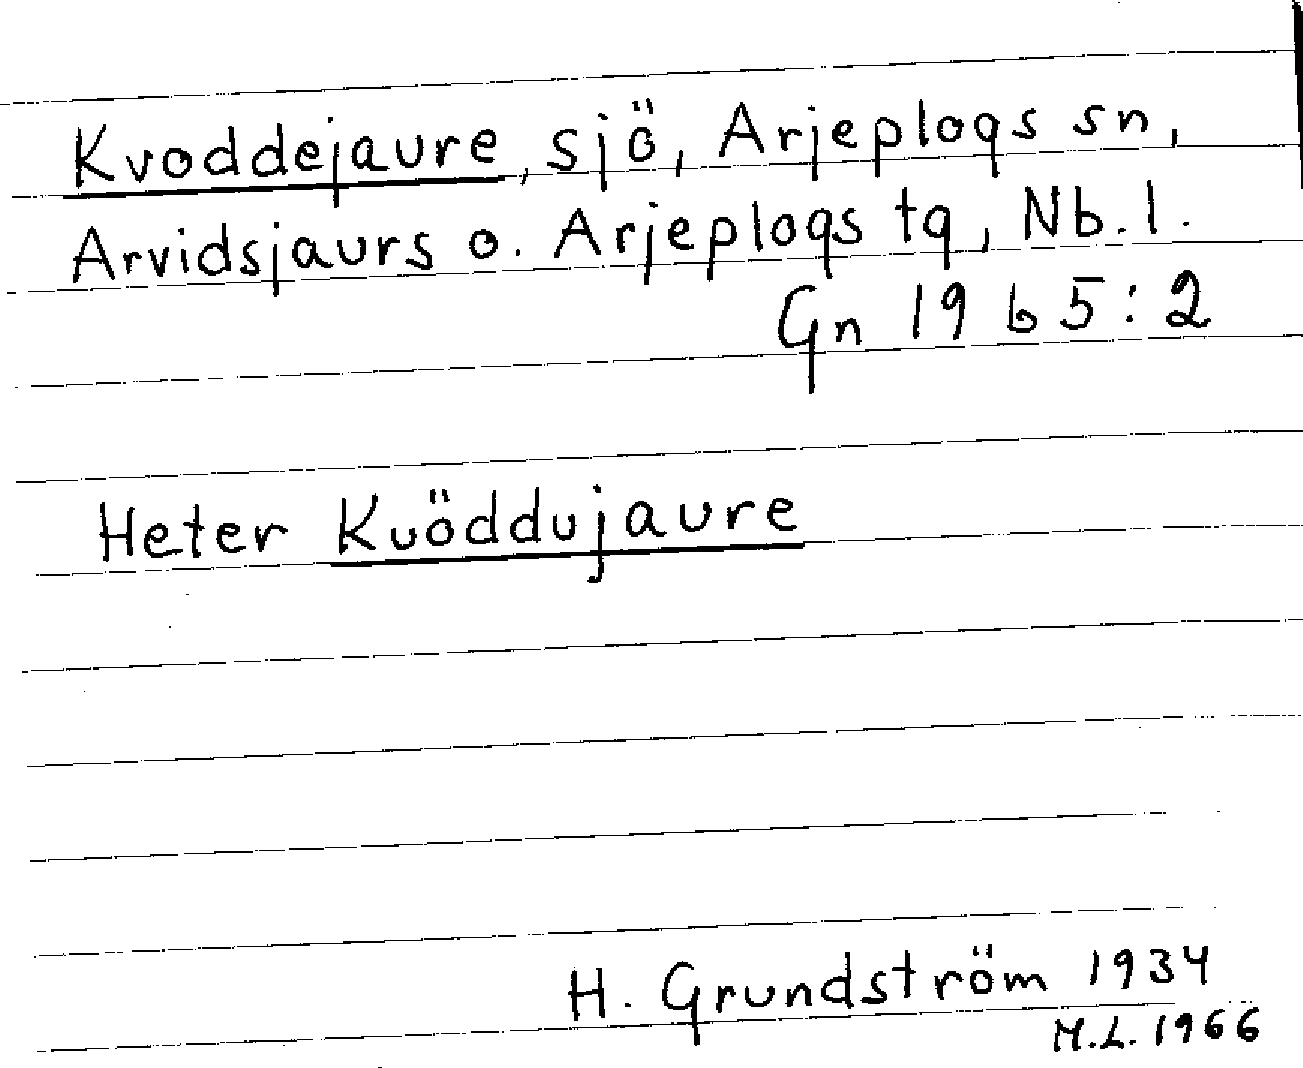 Kvoddejaure, sjö, Arjeplogs sn,
Arvidsjaurs o. Arjeplogs tg, Nb.l.
Gn 19 b 5:2
Heter Kuöddujaure
H. Grundström 1934
M.L. 1966